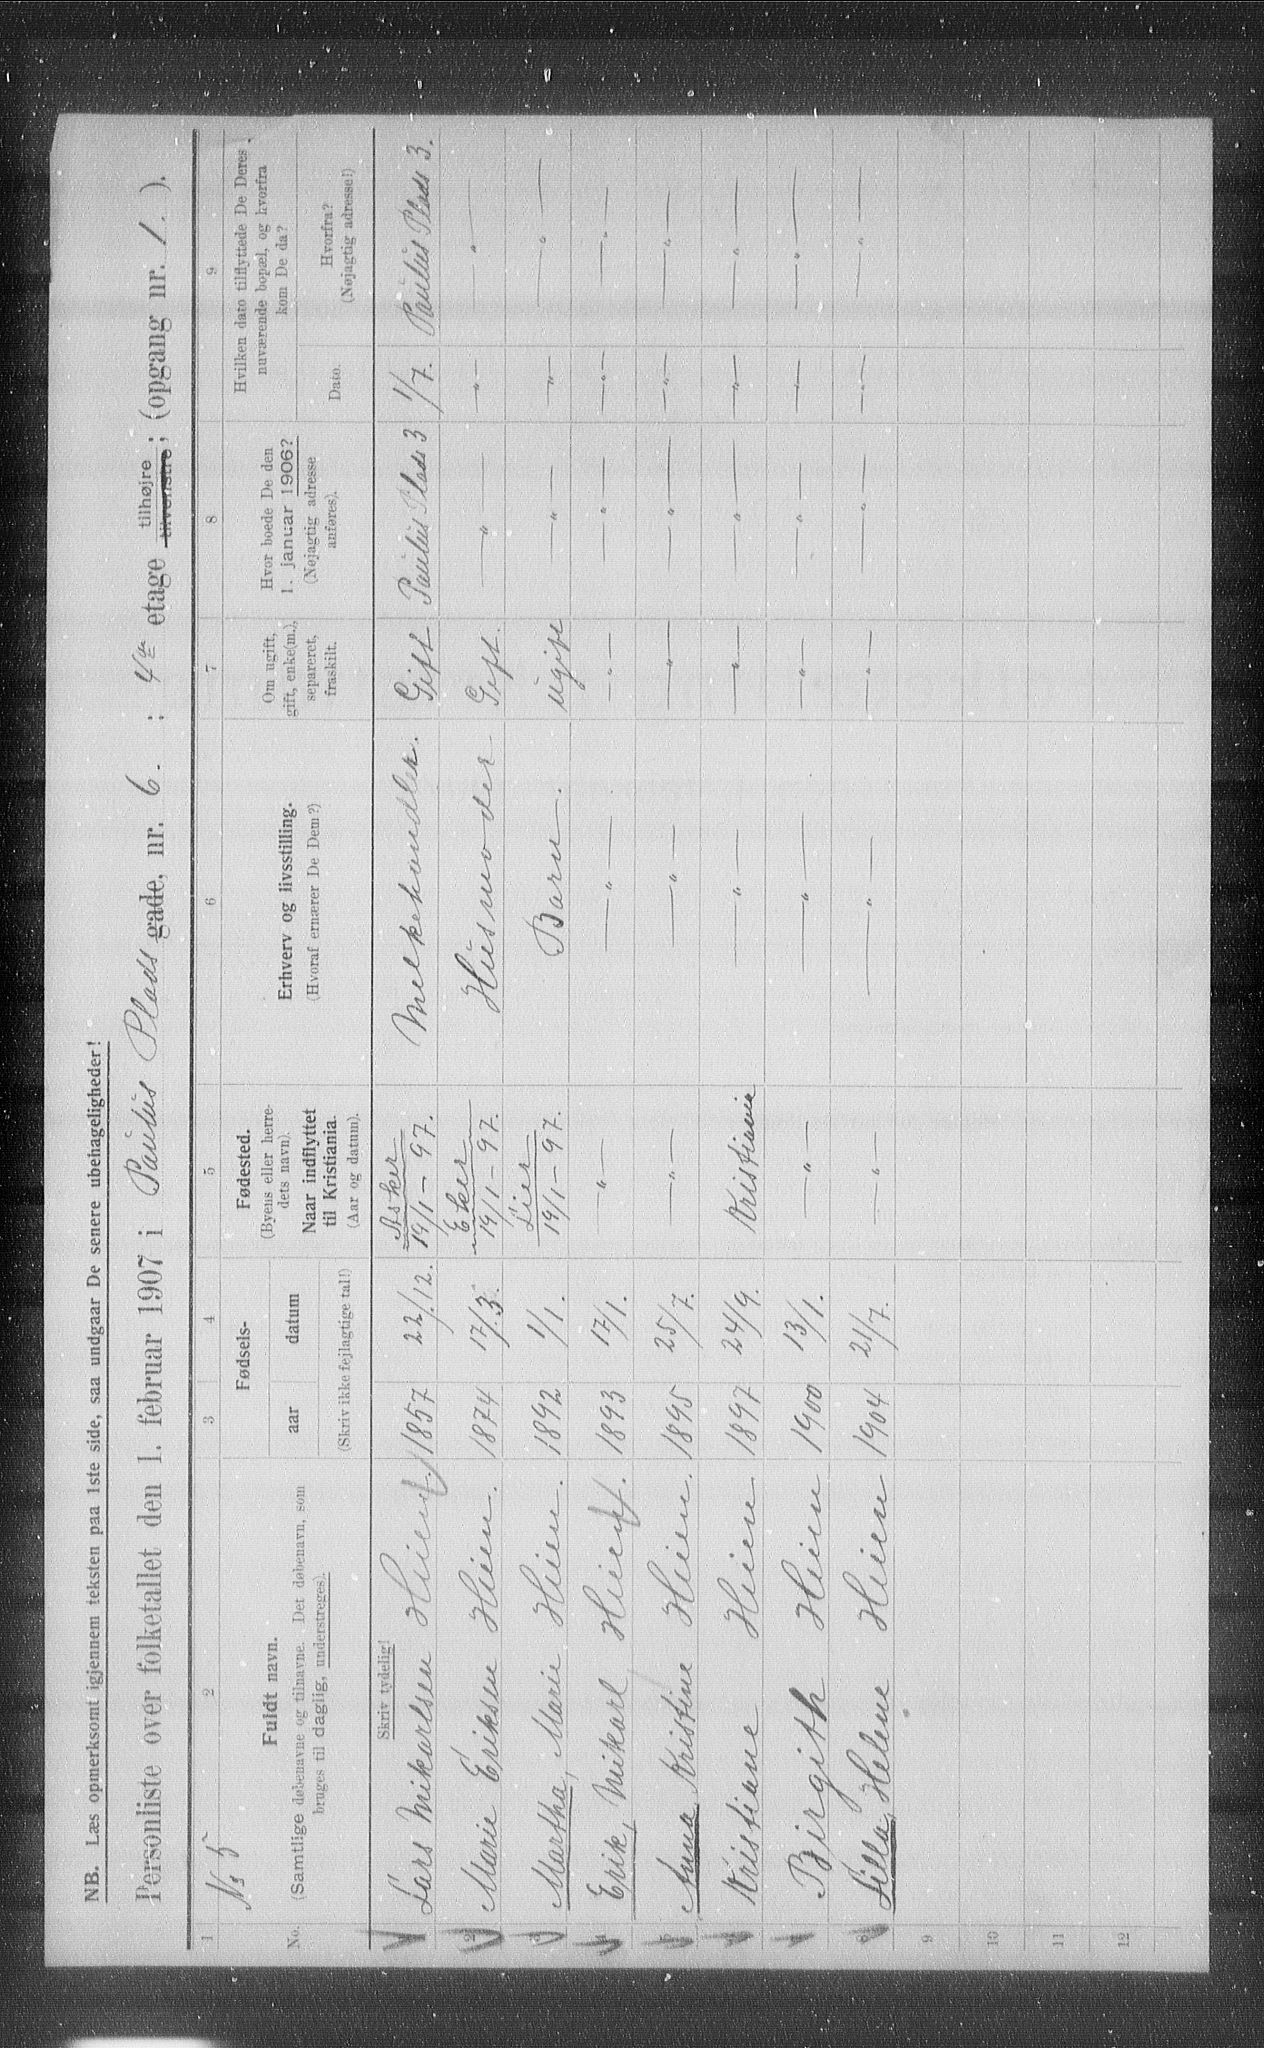 NB. Læs opmerksomt igjennem teksten paa 1ste side, saa undgaar De senere ubehageligheder!
Personliste over folketallet den 1. februar 1907 i Paulus Plads gade, nr. 6. : 4de etage tilhøjre tilvenstre; (opgang nr. 1. ).
1 2 3 4 5 6 7 8 9
No 5
No. Fuldt navn. (Samtlige døbenavne og tilnavne. Det døbenavn, som bruges til daglig, understreges). Fødsels- aar datum (Skriv ikke fejlagtige tal!) Fødested. (Byens eller herredets navn). Naar indflyttet til Kristiania. (Aar og datum). Erhverv og livsstilling. (Hvoraf ernærer De Dem?) Om ugift, gift, enke(m.), separeret, fraskilt. Hvor boede De den 1. januar 1906? (Nøjagtig adresse anføres). Hvilken dato tilflyttede De Deres nuværende bopæl, og hvorfra kom De da? Dato. Hvorfra? (Nøjagtig adresse!)
Skriv tydelig!
Lars Mikarlsen Hiien 1857 22/12. Asker 19/1-97. Melkehandler. Gift Paulus Plads 3 1/7. Paulus Plads 3.
2 Marie Eriksen Hiien. 1874 17/3. Eker 19/1-97. Husmoder Gift. —"— —"— —"—
Martha, Marie Hiien. 1892 1/1. Lier 19/1-97. Barn. ugift —"— —"— —"—
Erik, Mikarl Hiien. 1893 17/1. —"— —"— —"— —"— —"— —"—
Anna, Kristine Hiien. 1895 25/7. —"— —"— —"— —"— —"— —"—
Kristiane Hiien 1897 24/9. Kristiania —"— —"— —"— —"— —"—
Birgith Hiien 1900 13/1. —"— —"— —"— —"— —"— —"—
8 Lilla, Helene Hiien 1904 21/7. —"— —"— —"— —"— —"— —"—
9
10
11
12